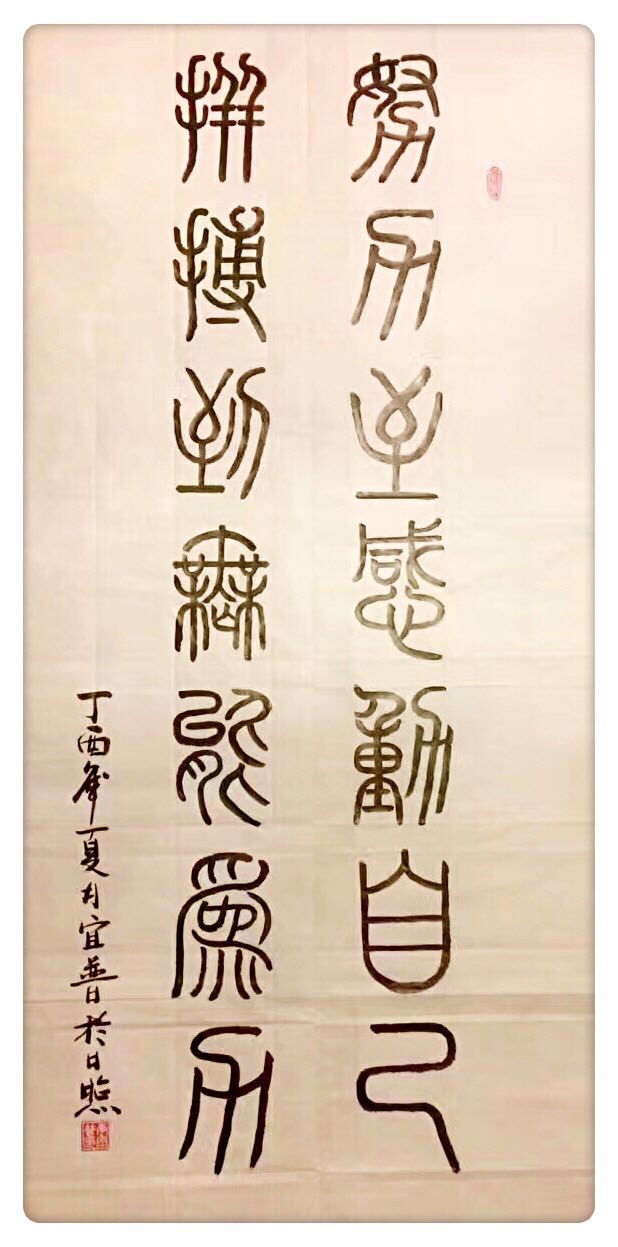 努力至感動自己
拼搏到無能為力
丁酉年夏月宜普於日照